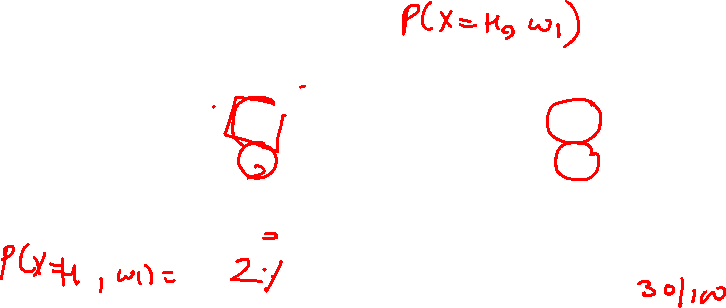 P(X=H, W1)
P(X=H, W1) = 2%
30/100